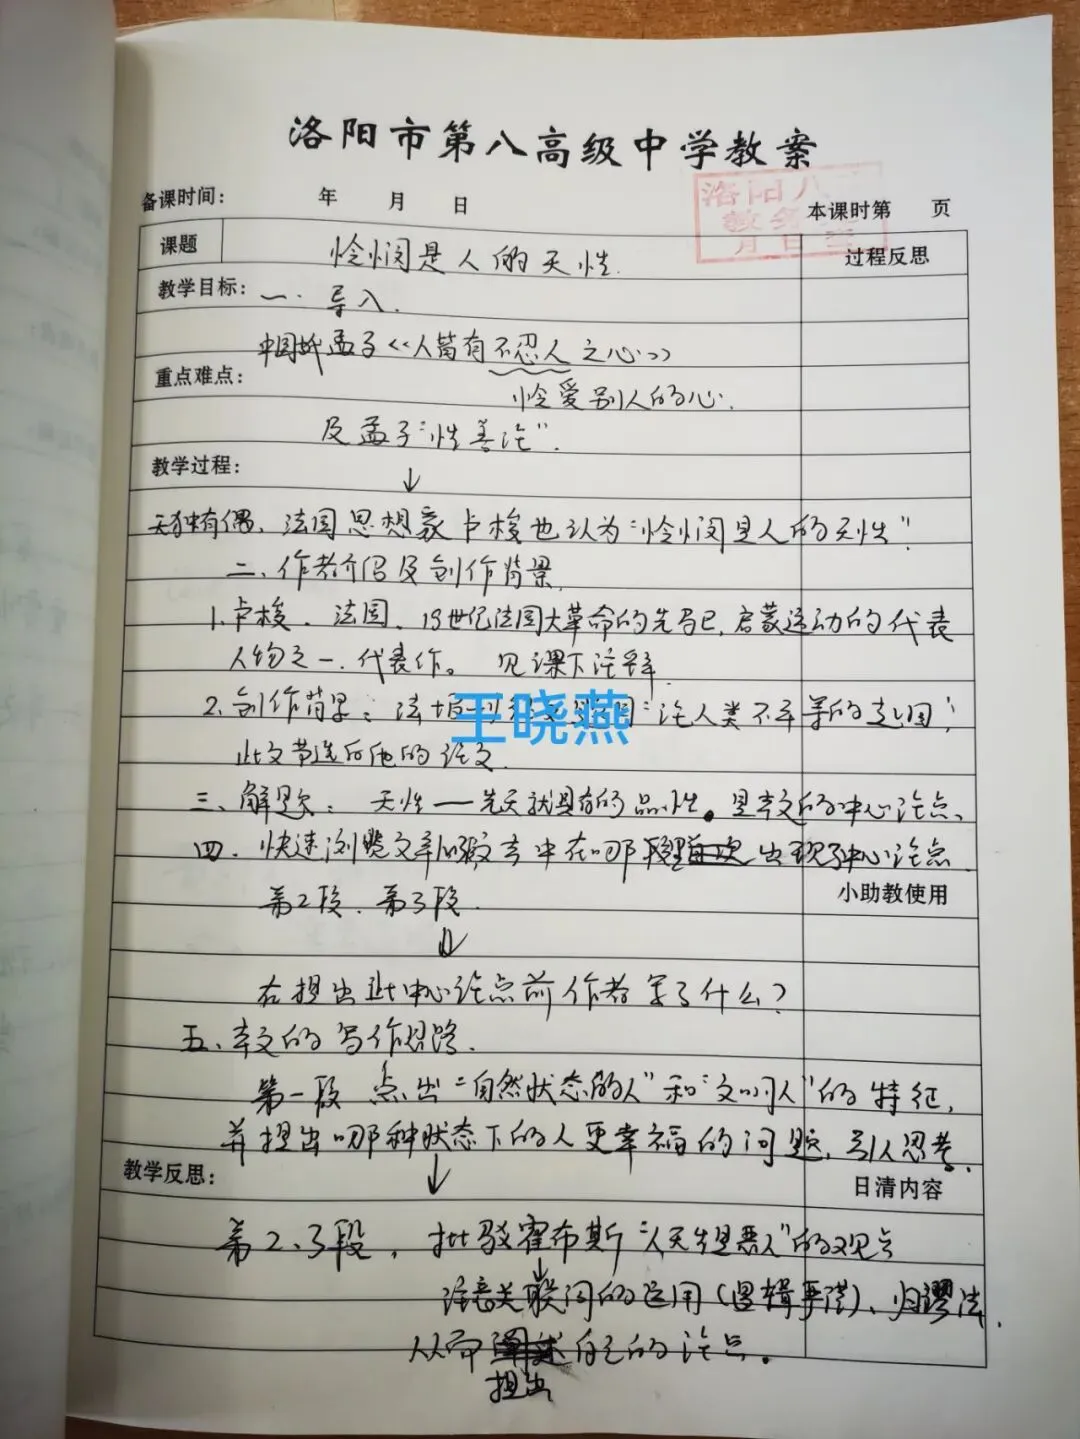 洛阳市第八高级中学教案
备课时间： 年 月 日
本课时第 页
洛阳八
课题 怜悯是人的天性. 过程反思
教学目标： 一. 导入.
中国孟子《人皆有不忍人之心》
重点难点：
怜爱别人的心.
及孟子"性善论".
教学过程：
↓
无独有偶，法国思想家卢梭也认为"怜悯是人的天性"
二、作者介绍及创作背景
1.卢梭. 法国、18世纪法国大革命的先导, 启蒙运动的代表
人物之一. 代表作。 见课下注释.
2.创作背景： "论人类不平等的起因"
王晓燕
此文节选自他的论文.
三、解题： 天性——先天就具有的品性。是本文的中心论点.
四. 快速浏览文章 中在哪段 出现了中心论点
小助教使用
第2段、第3段.
↓
在提出此中心论点前作者写了什么？
五、本文的写作思路.
第一段 点出"自然状态的人"和"文明人"的特征,
并提出哪种状态下的人更幸福的问题, 引人思考.
教学反思：
日清内容
↓
第2、3段， 批驳霍布斯"人天生是恶人"的观点
↓
注意关联词的运用(逻辑严谨)、归谬法.
从而 自己的论点。
提出